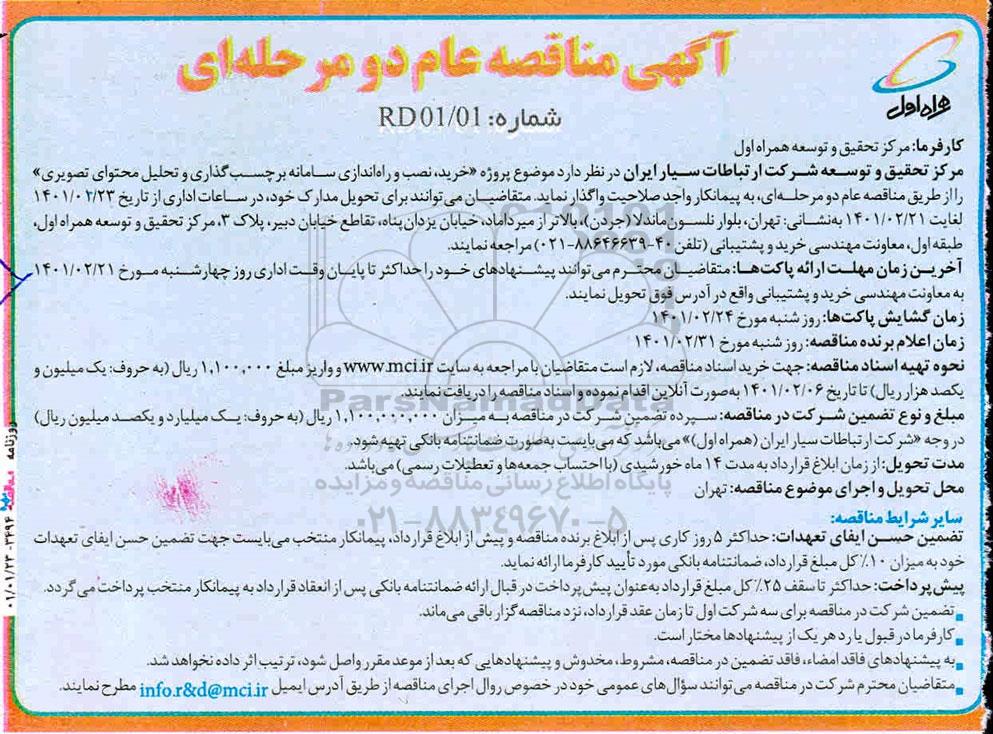 آگهی مناقصه عام دو مرحله‌ای
همراه اول
شماره: RD01/01
کارفرما: مرکز تحقیق و توسعه همراه اول
مرکز تحقیق و توسعه شرکت ارتباطات سیار ایران در نظر دارد موضوع پروژه «خرید، نصب و راه‌اندازی سامانه برچسب‌گذاری و تحلیل محتوای تصویری»
را از طریق مناقصه عام دو مرحله‌ای، به پیمانکار واجد صلاحیت واگذار نماید. متقاضیان می‌توانند برای تحویل مدارک خود، در ساعات اداری از تاریخ ۱۴۰۱/۰۲/۲۳
لغایت ۱۴۰۱/۰۲/۲۱ به‌نشانی: تهران، بلوار نلسون ماندلا (جردن)، بالاتر از میرداماد، خیابان یزدان‌پناه، تقاطع خیابان دبیر، پلاک ۳، مرکز تحقیق و توسعه همراه اول،
طبقه اول، معاونت مهندسی خرید و پشتیبانی (تلفن ۴۰-۸۸۶۴۶۶۳۹-۰۲۱) مراجعه نمایند.
آخرین زمان مهلت ارائه پاکت‌ها: متقاضیان محترم می‌توانند پیشنهادهای خود را حداکثر تا پایان وقت اداری روز چهارشنبه مورخ ۱۴۰۱/۰۲/۲۱
به معاونت مهندسی خرید و پشتیبانی واقع در آدرس فوق تحویل نمایند.
زمان گشایش پاکت‌ها: روز شنبه مورخ ۱۴۰۱/۰۲/۲۴
زمان اعلام برنده مناقصه: روز شنبه مورخ ۱۴۰۱/۰۲/۳۱
نحوه تهیه اسناد مناقصه: جهت خرید اسناد مناقصه، لازم است متقاضیان با مراجعه به سایت www.mci.ir و واریز مبلغ ۱,۱۰۰,۰۰۰ ریال (به حروف: یک میلیون و
یکصد هزار ریال) تا تاریخ ۱۴۰۱/۰۲/۰۶ به‌صورت آنلاین اقدام نموده و اسناد مناقصه را دریافت نمایند.
مبلغ و نوع تضمین شرکت در مناقصه: سپرده تضمین شرکت در مناقصه به میزان ۱,۱۰۰,۰۰۰,۰۰۰ ریال (به حروف: یک میلیارد و یکصد میلیون ریال)
در وجه «شرکت ارتباطات سیار ایران (همراه اول)» می‌باشد که می‌بایست به‌صورت ضمانتنامه بانکی تهیه شود.
مدت تحویل: از زمان ابلاغ قرارداد به مدت ۱۴ ماه خورشیدی (با احتساب جمعه‌ها و تعطیلات رسمی) می‌باشد.
محل تحویل و اجرای موضوع مناقصه: تهران
پایگاه اطلاع رسانی مناقصه و مزایده
۰۲۱-۸۸۳۴۹۶۷۰-۵
سایر شرایط مناقصه:
تضمین حسن ایفای تعهدات: حداکثر ۵ روز کاری پس از ابلاغ برنده مناقصه و پیش از ابلاغ قرارداد، پیمانکار منتخب می‌بایست جهت تضمین حسن ایفای تعهدات
خود به میزان ۱۰٪ کل مبلغ قرارداد، ضمانتنامه بانکی مورد تأیید کارفرما ارائه نماید.
پیش‌پرداخت: حداکثر تا سقف ۲۵٪ کل مبلغ قرارداد به‌عنوان پیش‌پرداخت در قبال ارائه ضمانتنامه بانکی پس از انعقاد قرارداد به پیمانکار منتخب پرداخت می‌گردد.
تضمین شرکت در مناقصه برای سه شرکت اول تا زمان عقد قرارداد، نزد مناقصه‌گزار باقی می‌ماند.
کارفرما در قبول یا رد هر یک از پیشنهادها مختار است.
به پیشنهادهای فاقد امضاء، فاقد تضمین در مناقصه، مشروط، مخدوش و پیشنهادهایی که بعد از موعد مقرر واصل شود، ترتیب اثر داده نخواهد شد.
متقاضیان محترم شرکت در مناقصه می‌توانند سؤال‌های عمومی خود در خصوص روال اجرای مناقصه از طریق آدرس ایمیل info.r&d@mci.ir مطرح نمایند.